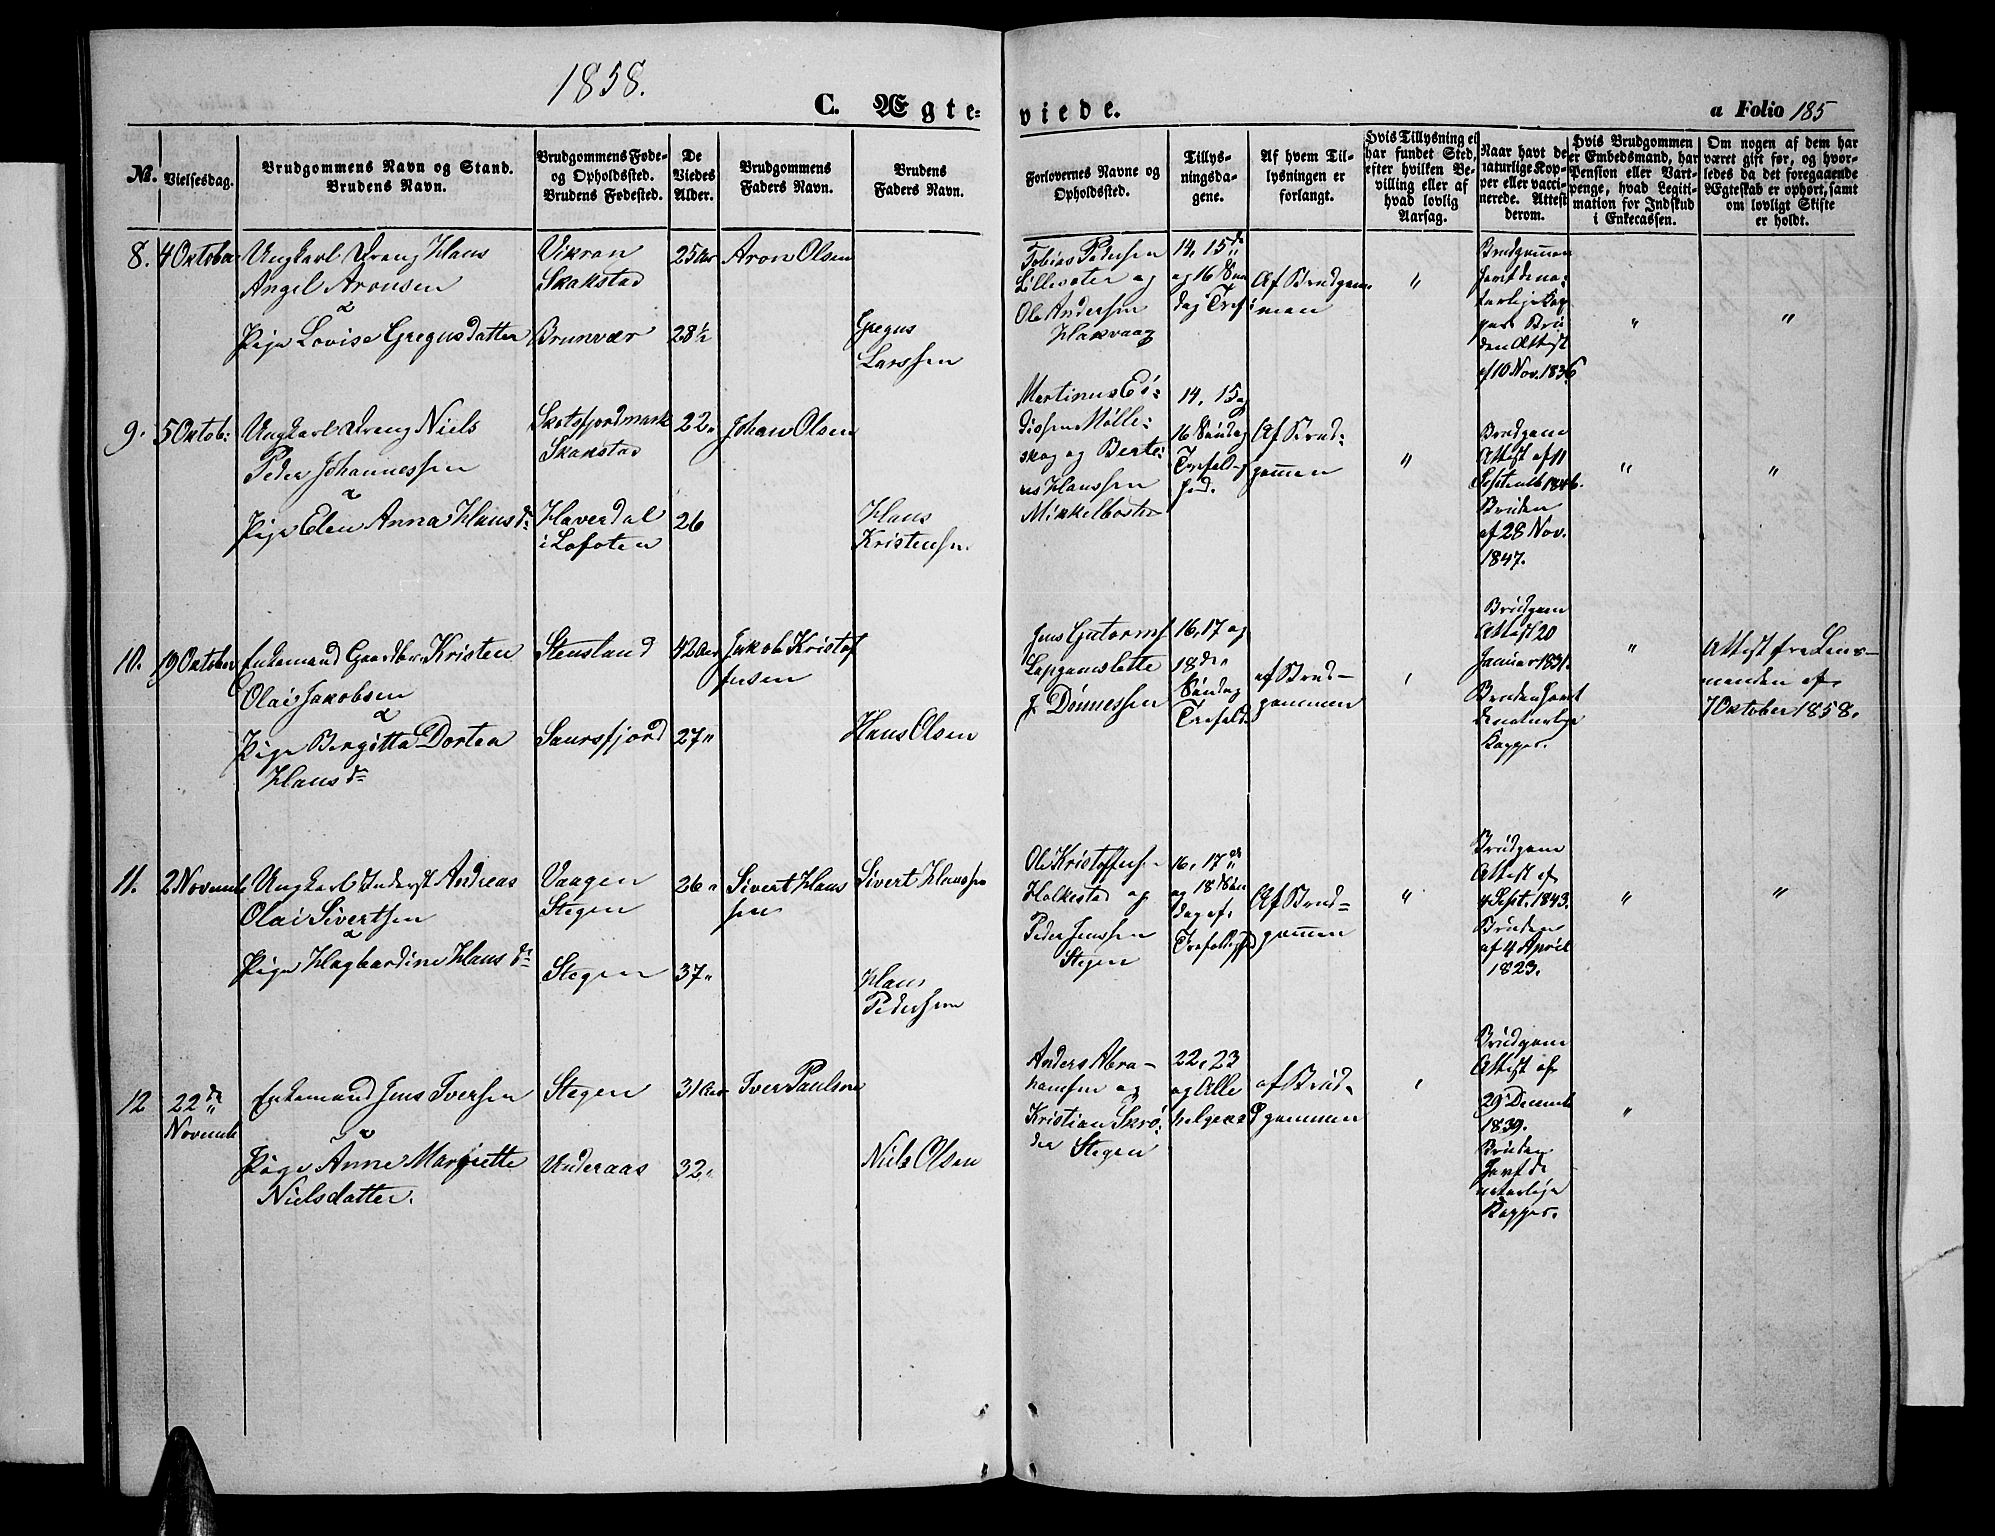 1858.
C. Ægte=
viede.
a Folio 185
No.
Vielsesdag.
Brudgommens Navn og Stand.
Brudens Navn.
Brudgommens Føde-
og Opholdssted.
Brudens Fødested.
De
Viedes
Alder.
Brudgommens
Faders Navn.
Brudens
Faders Navn.
Forlovernes Navne og
Opholdssted.
Tillys-
ningsda-
gene.
Af hvem Til-
lysningen er
forlangt.
Hvis Tillysning ei
har fundet Sted,
efter hvilken Be-
villing eller af
hvad lovlig
Aarsag.
Naar havt de
naturlige Kop-
per eller vacci-
nerede. Attest
derom.
Hvis Brudgommen
er Embedsmand, har
Pension eller Vart-
penge, hvad Legiti-
mation for Indskud
i Enkecassen.
Om nogen af dem har
været gift før, og hvor-
ledes da det foregaaende
Ægteskab er ophørt, samt
om lovligt Skifte
er holdt.
8. 4 Oktober
Ungkarl Dreng Hans
Angel Aronsen
&
Pige Lovise Gregusdatter
Vikran
Skakstad
Brunvær
25 Aar
28½
Aron Olsen
Gregus
Larssen
Tobias Pedersen
og
Ole Andersen
Hakvaag
14, 15de
og 16 Søn
dag Tref:
Af Brudgom-
man
"
Brudgommen
havt de na-
turlige Kop
per Bru
den Attest
af 10 Nov. 1836
"
"
9. 5 Oktob:
Ungkarl Dreng Niels
Peder Johannessen
&
Pige Elen Anna Hansdr
Skotsfjordmark
Skakstad
Haverdal
i Lofoten
22"
26
Johan Olsen
Hans
Kristensen.
Martinus Es-
diosen Mølle-
skog og Berte-
us Hanssen
Minkelbosten
14, 15 og
16 Søndag
Trefoldig
hed.
Af Brud-
gommen
"
Brudgom
Attest af 11
Septemb 1846.
Bruden
af 28 Nov.
1847.
"
"
10. 19 Oktober
Enkemand Gaardbr. Kristen
Olai Jakobsen
&
Pige Birgitta Dortea
Hansdr
Stensland
Saursfjord
42 Aar
27"
Jakob Kristof
fersen
Hans Olsen
Jens Gutormsen
J. Dønnessen
16, 17 og
18de
Søndag
Trefold
af Brud-
gommen
"
Brudgom
Attest 20
Januar 1831.
Bruden havt
de naturlige
Kopper.
"
Attest fra Lens-
manden af
7 Oktober 1858.
11. 2 Novemb
Ungkarl Inderst Andreas
Olai Sivertsen
&
Pige Hagbardine Hansdr
Vaagen
Stegen
Stegen
26"
37"
Sivert Hans
sen
Sivert Hanssen
Hans
Pedersen
Ole Kristoffers-
Holkestad og
Peder Jenssen
Stegen
16, 17de
og 18 Søn
dag ef.
Trefoldighed
Af Brud-
gommen
"
Brudgom
Attest af
4 Sept. 1843.
Bruden
af 4 April
1823.
"
"
12 22de
Novemb
Enkemand Jens Iversen
&
Pige Anne Margrette
Nielsdatter.
Stegen
Underaas
31 Aar
32"
Iver Paulsen
Niels Olsen
Anders Abra-
hamsen og
Kristian Skrø-
der Stegen
22, 23
og Alle
helgens D
af Brud-
gommen
"
Brudgom
Attest af
29 Decemb
1839.
Bruden
havt de
naturlige
Kopper.
"